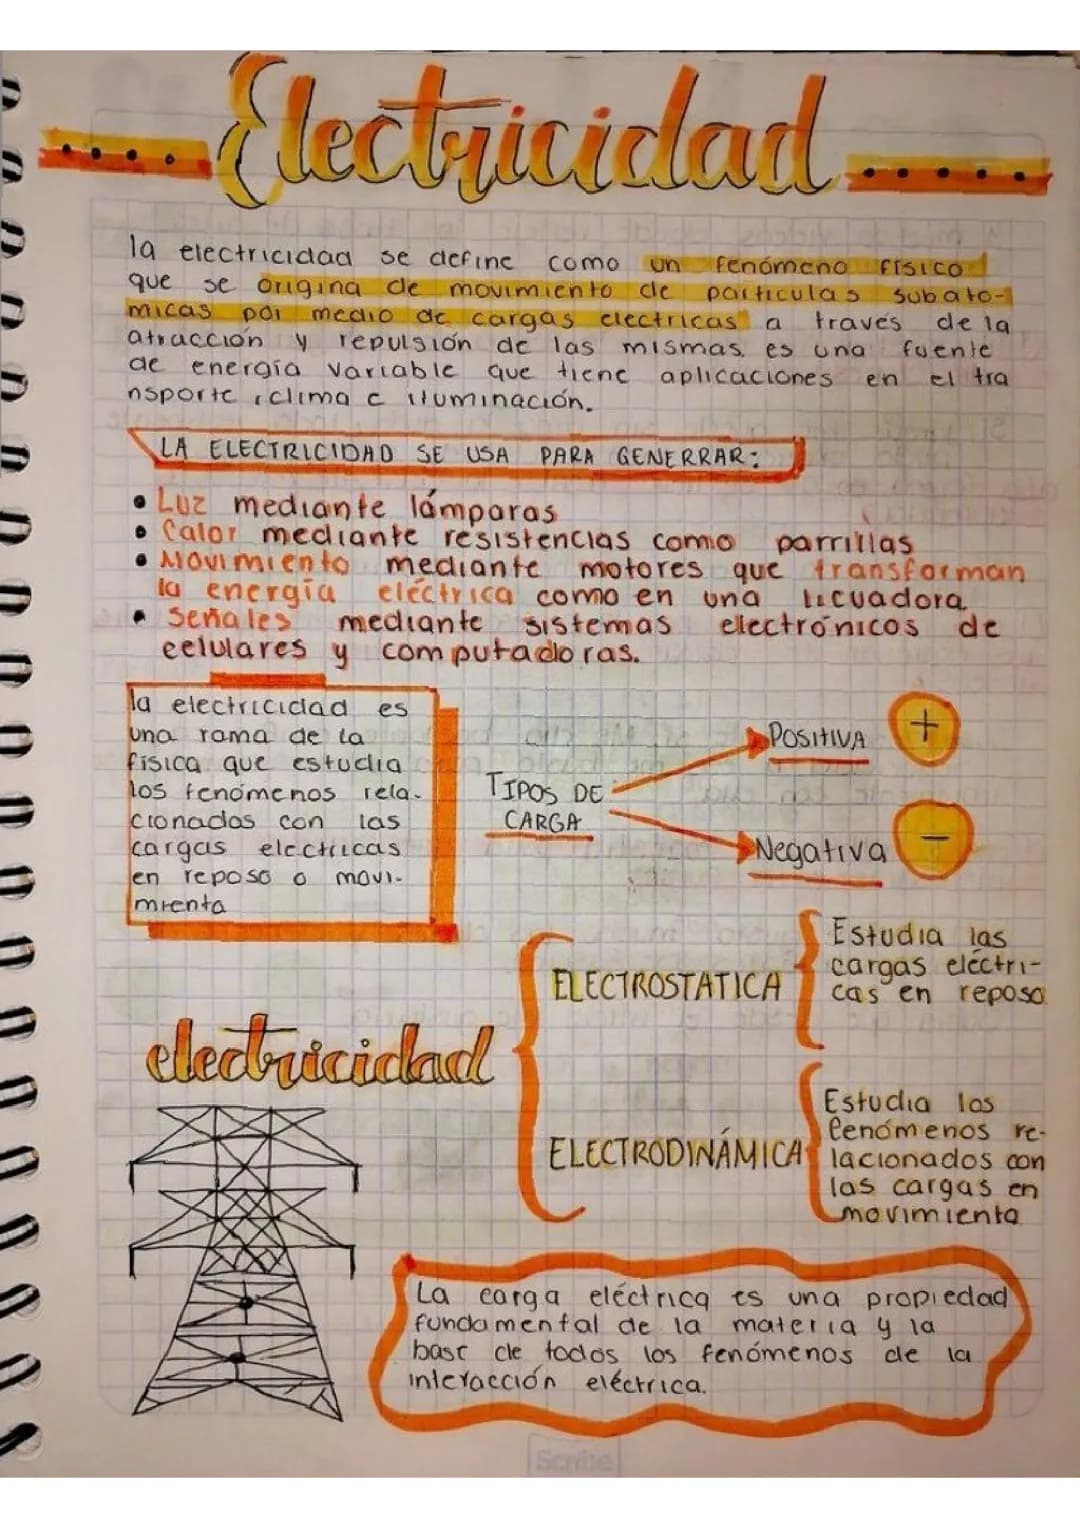 Electricidad
la electricidad se define como un fenómeno físico
que se origina de movimiento de particulas subato-
micas por medio de cargas electricas a través de la
atracción y repulsión de las mismas. es una fuente
de energía variable que tiene aplicaciones en el tra
nsporte, clima e iluminación.
LA ELECTRICIDAD SE USA PARA GENERRAR:
• Luz mediante lámparas
• Calor mediante resistencias como parrillas
• Movimiento mediante motores que transforman
la energía eléctrica como en una licuadora
• Señales mediante sistemas electrónicos de
celulares y computadoras.
la electricidad es
una rama de la
física que estudia
los fenómenos rela-
cionados con las
cargas electricas
en reposo o movi-
miento
TIPOS DE
CARGA
POSITIVA +
Negativa -
electricidad
ELECTROSTATICA
Estudia las
cargas eléctri-
cas en reposo
ELECTRODINÁMICA
Estudia los
fenómenos re-
lacionados con
las cargas en
movimiento
La carga eléctrica es una propiedad
fundamental de la materia y la
base de todos los fenómenos de la
interacción eléctrica.
Scribe